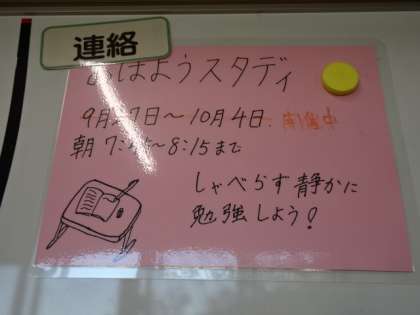 連絡
おはようスタディ
9月27日～10月4日 実施中
朝7:45～8:15まで
しゃべらず静かに
勉強しよう!